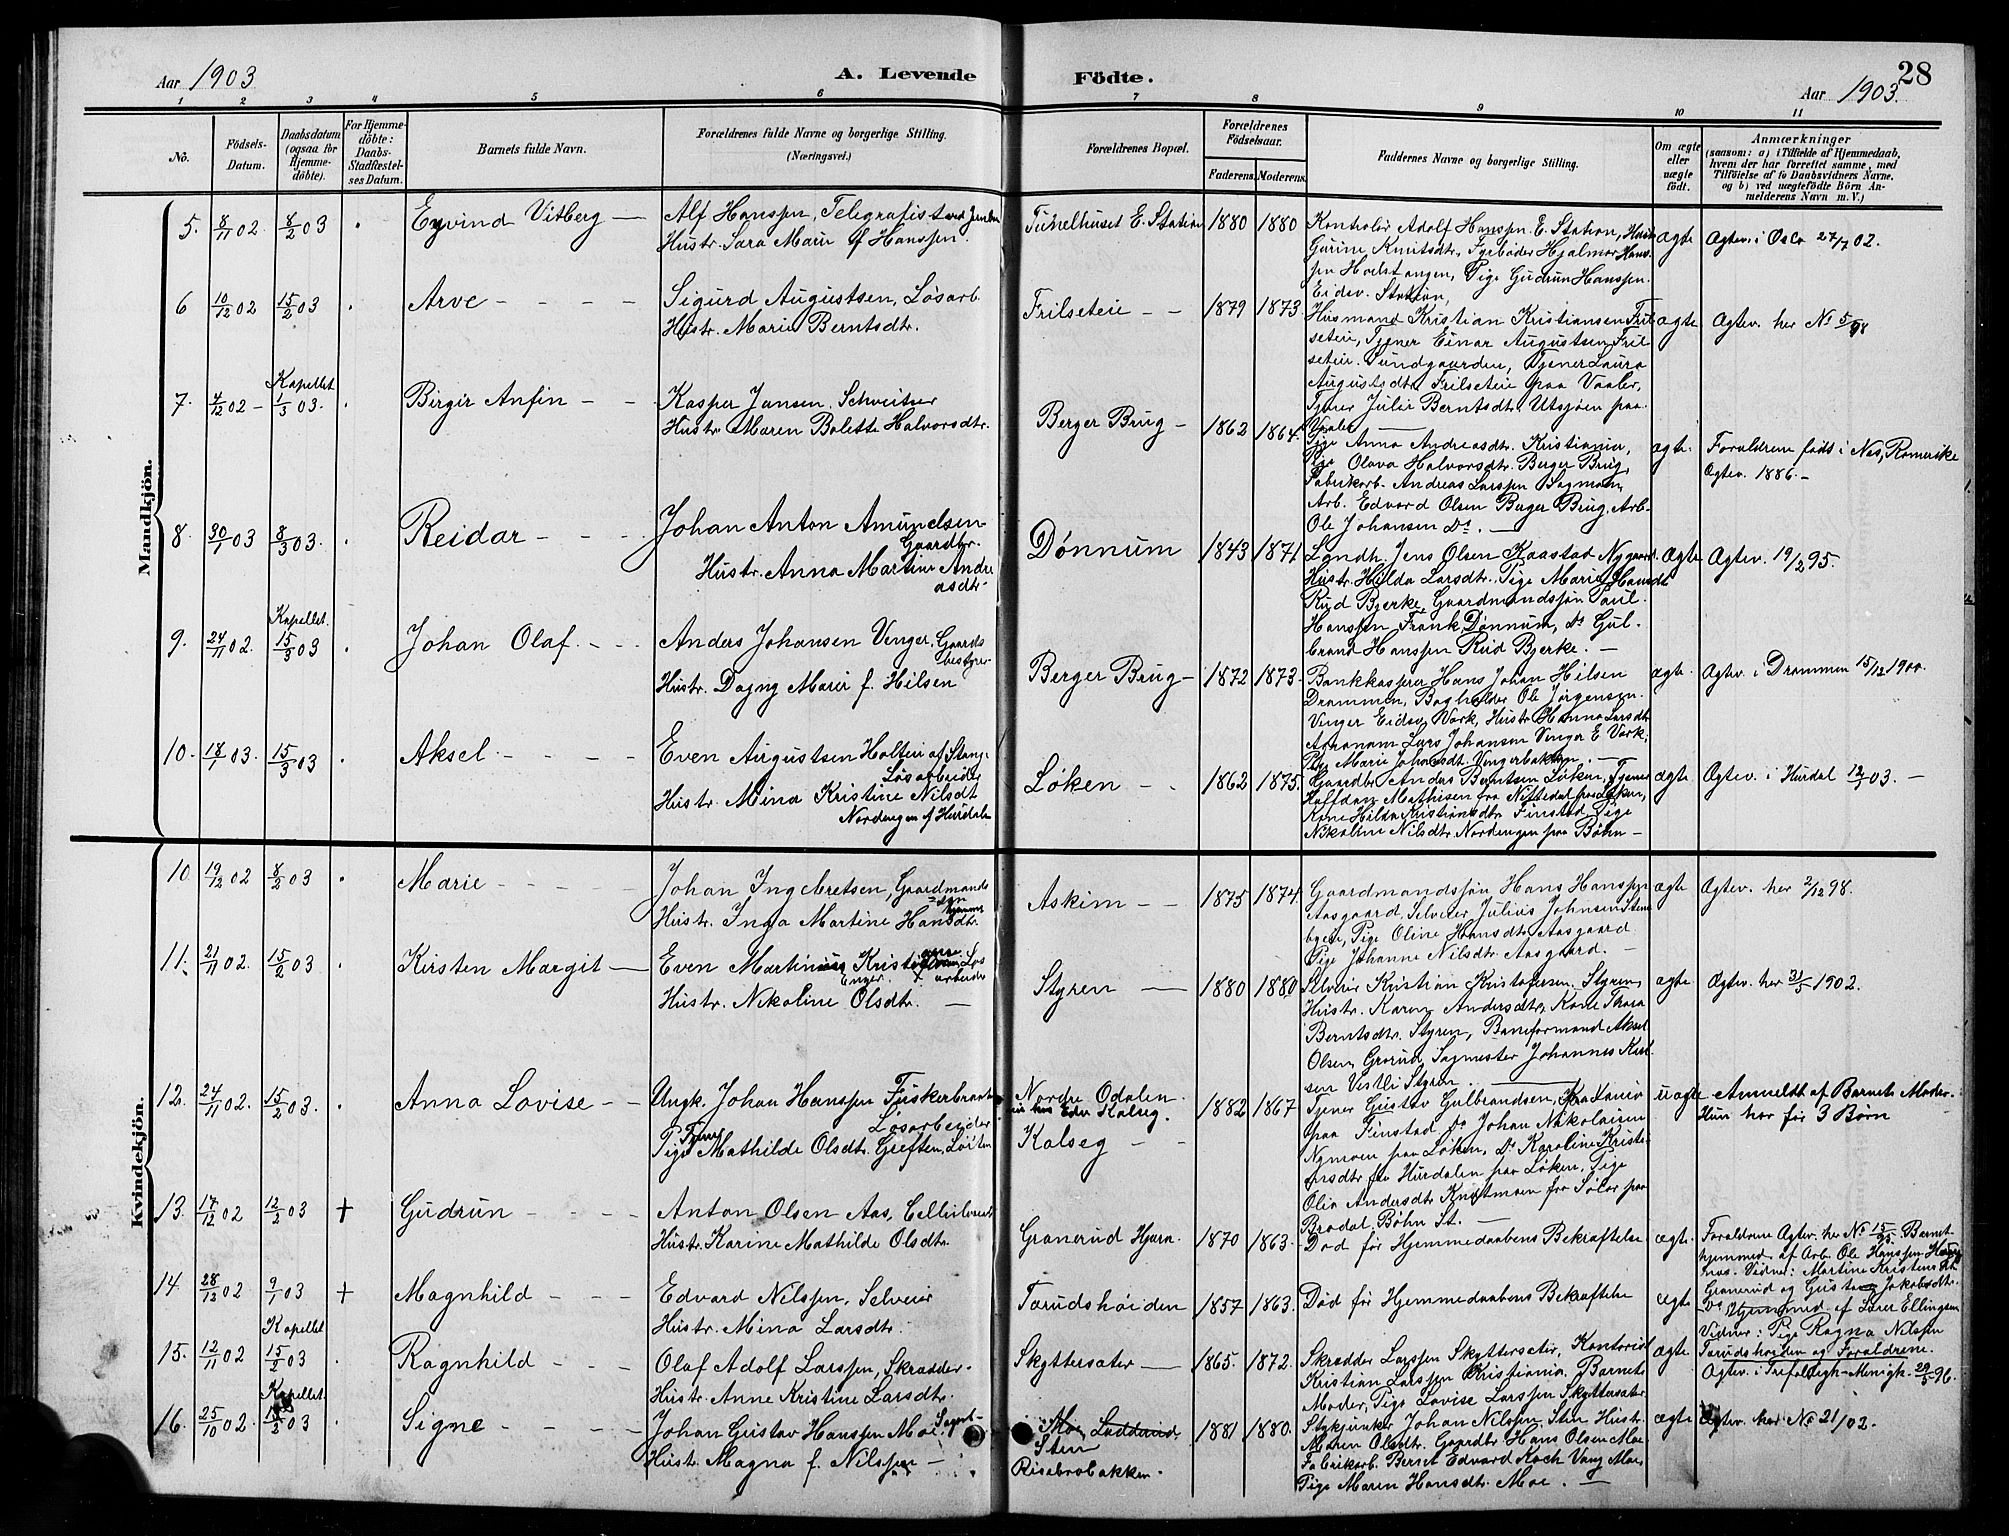 Aar 1903
A. Levende Födte.
28
Aar 1903.
1 2 3 4 5 6 7 8 9 10 11
No.
Födsels-
Datum.
Daabsdatum
(ogsaa for
Hjemme-
döbte).
For Hjemme-
döbte:
Daabs-
Stadfæstel-
ses Datum.
Barnets fulde Navn.
Forældrenes fulde Navne og borgerlige Stilling.
(Næringsvei.)
Forældrenes Bopæl.
Forældrenes
Födselsaar.
Faderens. Moderens.
Faddernes Navne og borgerlige Stilling.
Om ægte
eller
uægte
födt.
Anmærkninger
(saasom: a) i Tilfælde af Hjemmedaab,
hvem der har forrettet samme, med
Tilföielse af to Daabsvidners Navne,
og b) ved uægtefödte Börn An-
melderens Navn m. V.)
Mandkjön.
5. 8/11 02 8/2 03 Eyvind Vitberg — Alf Hanssen, Telegrafist ved
Hustr. Sara Marie f. Hanssen.
E. Station 1880 1880
Kontrolør Adolf Hanssen E. Station,
Gurine Knutsdtr., Fyrbøder Hjalmar Hans-
sen Pige Gudrun Hanssen
Eidsv. Station,
ægte Ægtev. i Oslo 27/7 02.
6 10/12 02 15/2 03 Arve - - - - Sigurd Augustsen, Løsarb.
Hustr. Marie Berntsdtr.
Frilseteie - - 1879 1873.
Husmand Kristian Kristiansen Fril-
seteie, Tjener Einar Augustsen Fril-
seteie. Sundgaarden, Tjener Laura
Augustsdtr. Frilseteie paa Vaaler,
Tjener Julie Berntsdtr. Utsjøen paa
Vaaler —
ægte Ægtev. her No 5/98
7. 4/12 02 - Kapellet 1/3 03. Birger Anfin - - Kasper Jansen, Schveitser
Hustr. Maren Bolette Halvorsdtr.
Berger Brug - 1862 1864.
Pige Anna Andreasdtr. Kristiania,
Pige Olava Halvorsdtr. Berger Brug,
Fabrikarb. Andreas Larssen Sagmoen,
Arb. Edvard Olsen Berger Brug, Arb.
Ole Johansen Do. —
ægte. Forældrene født i Nes, Romerike
Ægtev. 1886. -
8. 30/1 03 8/3 03. Reidar - - - Johan Anton Amundsen
Gaardbr.
Hustr. Anna Martine Andre-
asdtr.
Dønnum 1843 1871
Landh. Jens Olsen Kaastad Nygaard.
Hustr. Hilda Larsdtr., Pige Marie Hansdtr.
Rud Bjerke, Gaardmandssøn Paul
Hanssen Frank Dønnum, Do Gul-
brand Hanssen Rud Bjerke. —
ægte Ægtev. 19/2 95.
9. 24/11 02. Kapellet. 15/3 03 Johan Olaf. - - Anders Johansen Venger, Gaards-
bestyrer
Hustr. Dagny Marie f. Hilsen
Berger Brug - 1872 1873.
Bankkasserer Hans Johan Hilsen
Drammen, Bogholder Ole Jørgensen
Venger Eidsv. Værk, Hustr. Hanna Larsdtr.
Lars Johansen Venger E. Værk,
Pige Marie Johansdtr. Vengerbakken. —
ægte. Ægtev. i Drammen 15/12 1900.
10. 18/1 03. 15/3 03 Aksel - - - - Even Augustsen Holteie af Stange
Løsarbeider
Hustr. Mina Kristine Nilsdt.
Nordengen af Hurdalen
Løken - - 1862 1875.
Gaardbr. Anders Berntsen Løken, Tjener
Halfdan Mathisen fra Nittedal paa Løken,
Kone Hilda Kristiansdtr. Finstad, Pige
Nikoline Nilsdtr. Nordengen paa Bøhn -
ægte Ægtev. i Hurdal 12/1 03. —
Kvindekjön.
10 19/12 02 8/2 03 Marie - - - - Johan Ingebretsen, Gaardmands-
søn
Hustr. Inga Martine Hansdtr.
Askim - - 1875 1874.
Gaardmandssøn Hans Hanssen
Aasgaard, Selveier Julius Johnsen Sten-
byen, Pige Oline Hansdtr. Aasgaard
Pige Johanne Nilsdtr. Aasgaard. —
ægte Ægtev. her 2/12 98.
11. 21/11 02. 15/2 03 Kirsten Margit — Even Martinius Løs-
arbeider
Hustr. Nikoline Olsdtr. —
Styren — 1880 1880
Selveier Kristian Kristofersen Styren,
Hustr. Karen Andersdtr., Kone Thora
Berntsdtr. Styren, Baneformand Aksel
Olsen Grorud, Sagmester Johannes
sen Vestli Styren. —
ægte Ægtev. her 31/5 1902.
12. 24/11 02. 15/2 03. Anna Lovise - - Ungk. Johan Hanssen
Løsarbeider
Pige Tjener Mathilde Olsdtr. Greften, Løiten
Nordre Odalen
Kalseg - - 1882 1867
Tjener Gustav Gulbrandsen,
paa Finstad, Do Johan Nikolaisen
Nymoen paa Løken, Do Karoline Kristi-
ansdtr. fra Hurdalen paa Løken, Pige
Olia Andersdtr. Knutmoen fra Solør paa
Brodal, Bøhn St. —
uægte Anmeldt af Barnets Moder.
Hun har før 3 Børn
13. 17/12 02 12/2 03 + Gudrun - - - - Anton Olsen Aas,
Hustr. Karine Mathilde Olsdtr.
Granerud Hjera. 1870 1863.
Død før Hjemmedaabens Bekræftelse
ægte. Forældrene Ægtev. her No 15/95. Barnet
hjemmed. af Arb. Ole Hanssen
Vidner: Martine
Granerud og Jakobsdtr.
14. 28/12 02 9/1 03 + Magnhild - - - Edvard Nilssen, Selveier
Hustr. Mina Larsdtr.
Tærudshøiden 1857 1863.
Død før Hjemmedaabens Bekræftelse
ægte Do Hjemmed. af Lærer Ellingsen
Vidner: Pige Ragna Nilssen
Tærudshøiden og Forældrene.
15. 12/11 02 Kapellet 15/2 03 Ragnhild - - Olaf Adolf Larssen, Skrædder
Hustr. Anne Kristine Larsdtr.
Skyttersæter — 1865. 1872.
Skrædder Larssen Skyttersæter, Kontorist
Kristian Larssen Kristiania, Barnets
Moder, Pige Lovise Larssen Skyttersæter
ægte Ægtev. i Trefoldigh-Menigh. 29/5 96.
16. 25/10 02. Kapellet 15/2 03 Signe - - - Johan Gustav Hanssen Moe
Hustr. Magna f. Nilssen —
Moe Ludderud
Sten
Risebrobakken. 1881 1880.
Stykjunker Johan Nilssen Sten Hustr.
Maren Olsdtr. Gaardbr. Hans Olsen Moe
Fabrikarb. Edvard Koch Vang Moe,
Pige Maren Hansdtr. Moe. —
ægte Ægtev. her No 21/02.